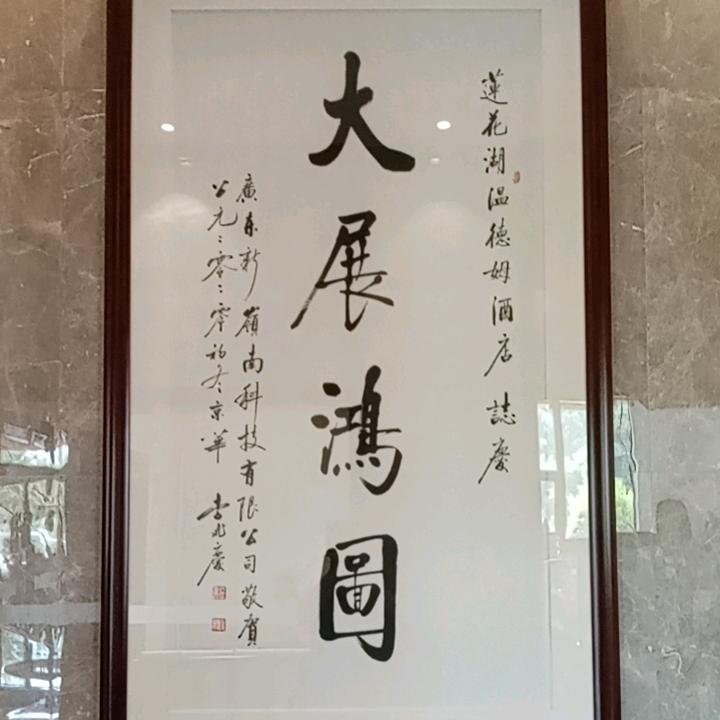 蓮花湖温德姆酒店 誌慶
大展鴻圖
廣东新嶺南科技有限公司敬賀
公元二零二零初冬京華 李兆慶